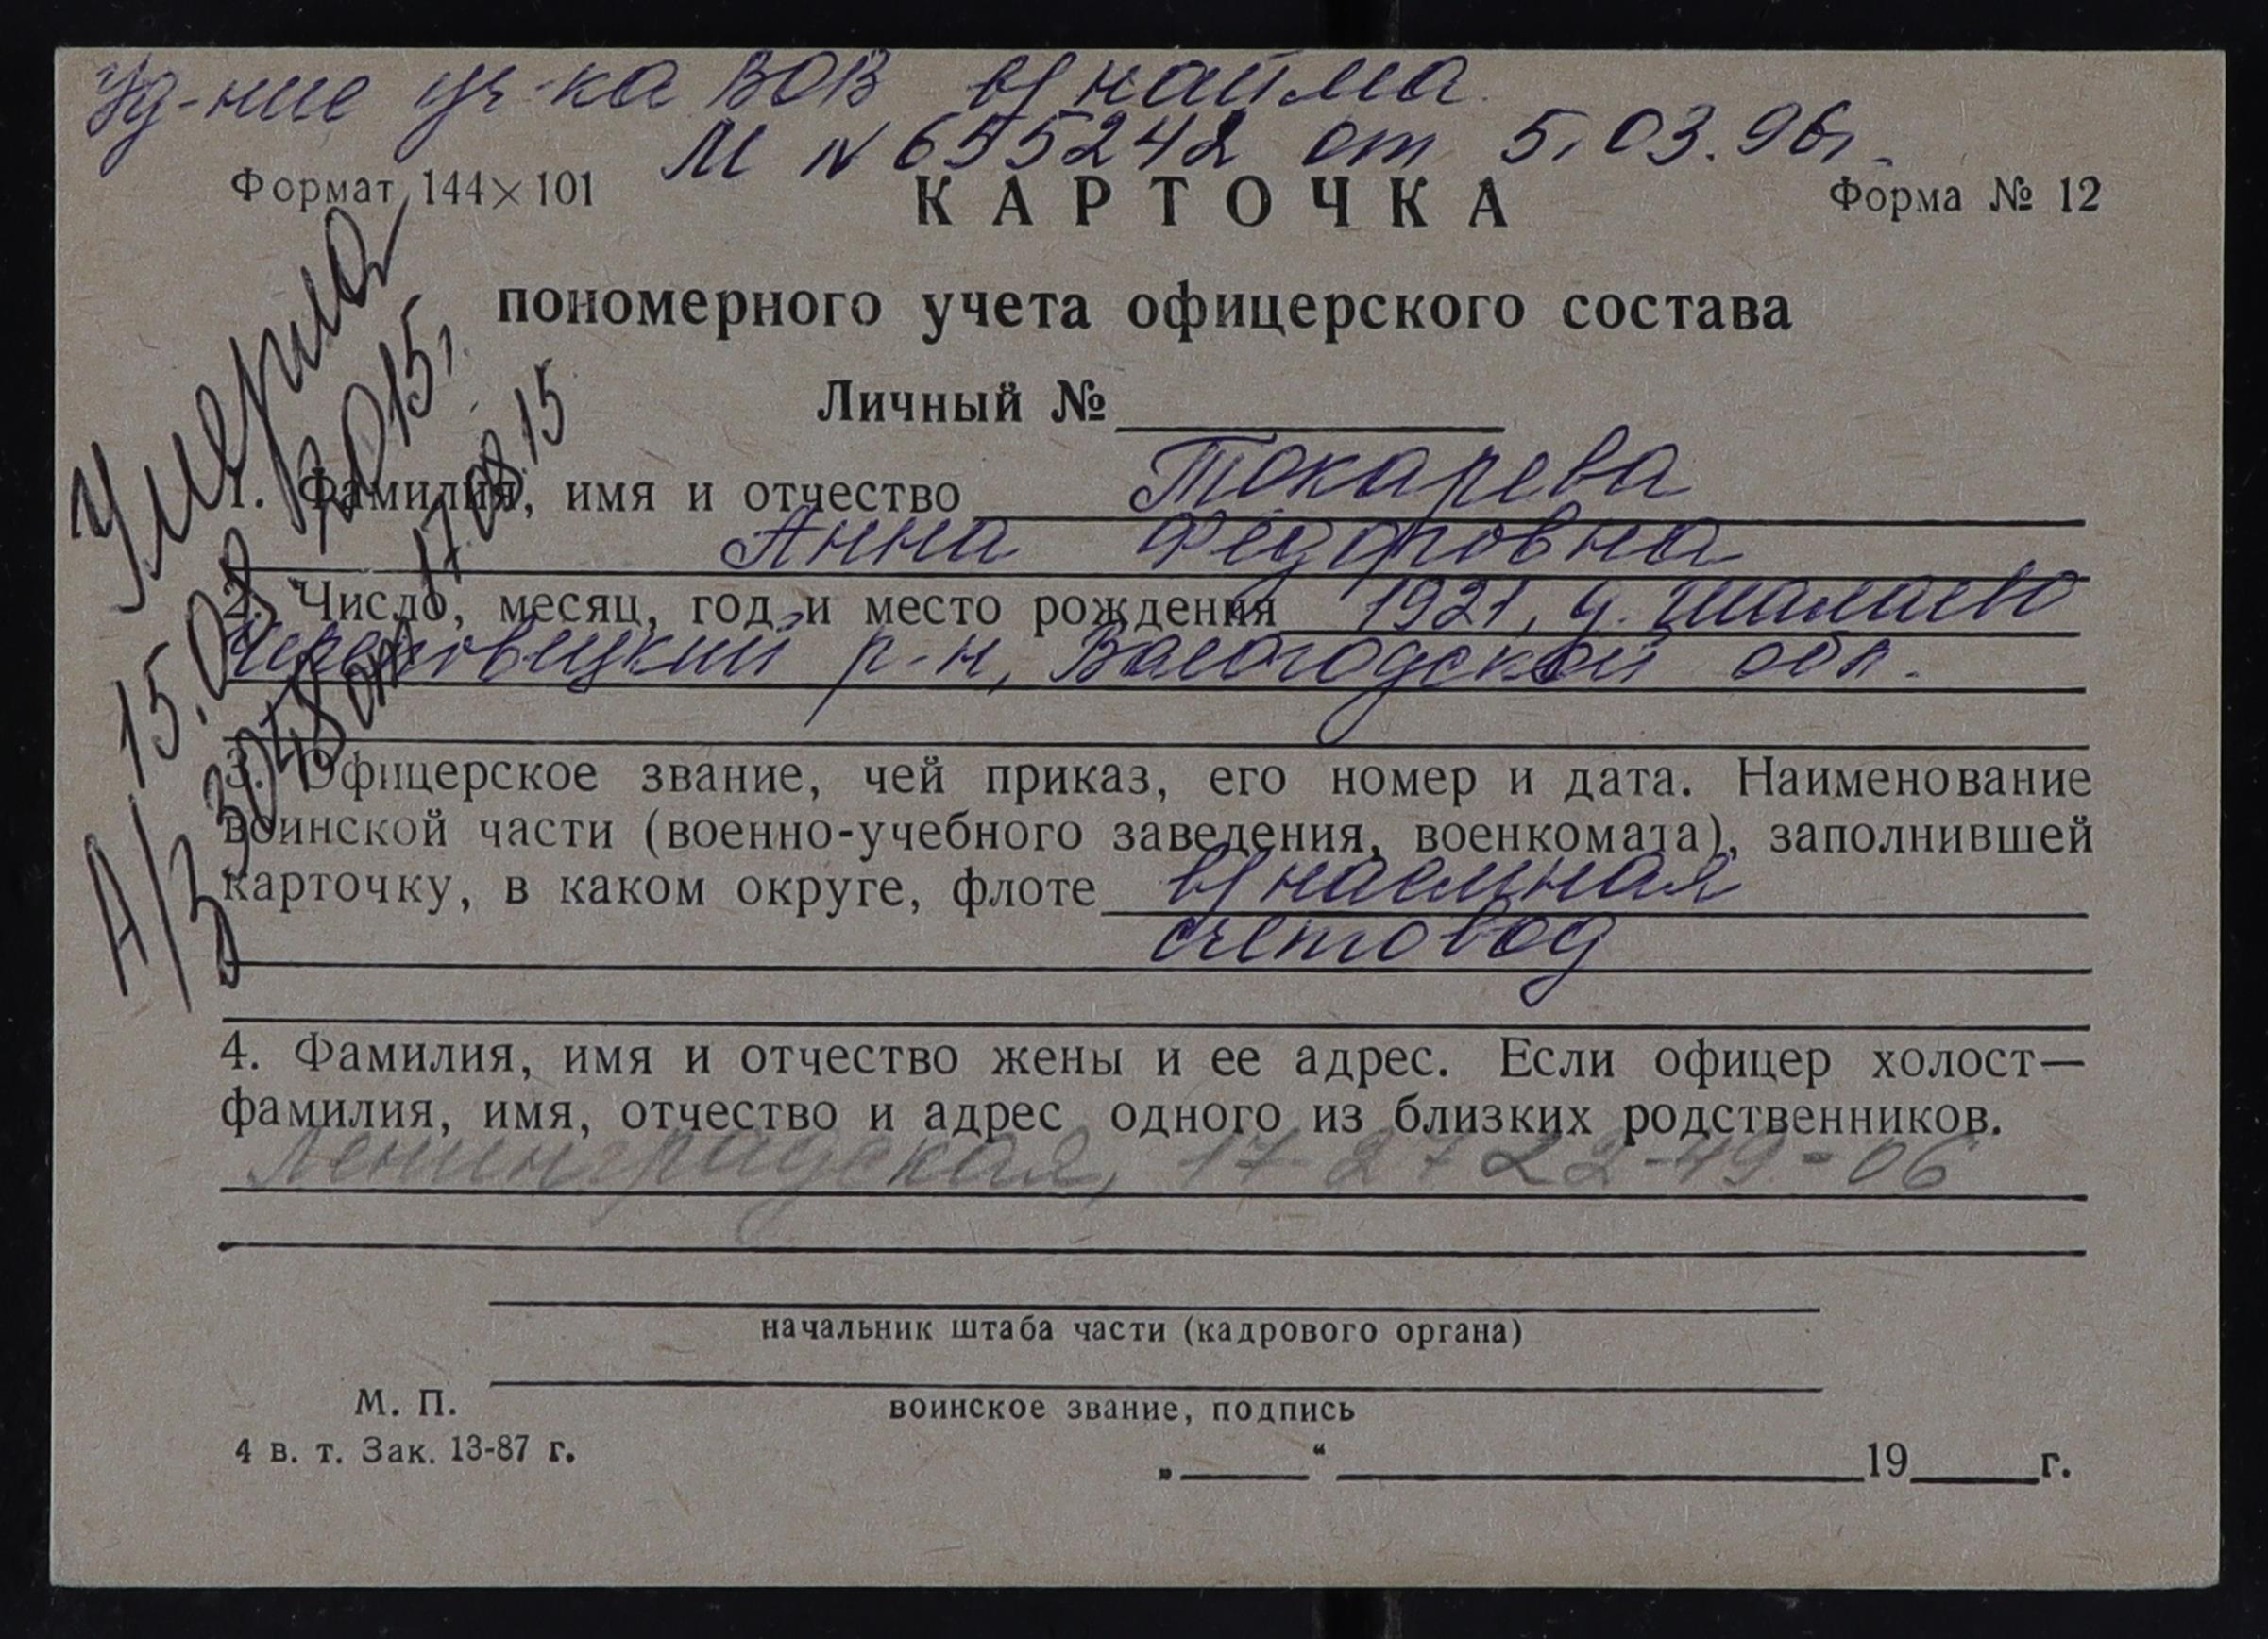 Уд-ние уч-ка ВОВ в/найма
М № 655242 от 5.03.96г.
Формат 144×101
КАРТОЧКА
Форма № 12
пономерного учета офицерского состава
Личный №
Умерла
15.08.2015г.
А/З 3048 от 17.08.15
1. Фамилия, имя и отчество Токарева
Анна Федоровна
2. Число, месяц, год и место рождения 1921, д. Шамаево
Череповецкий р-н, Вологодской обл.
3. Офицерское звание, чей приказ, его номер и дата. Наименование
воинской части (военно-учебного заведения, военкомата), заполнившей
карточку, в каком округе, флоте в/наемная
счетовод
4. Фамилия, имя и отчество жены и ее адрес. Если офицер холост—
фамилия, имя, отчество и адрес одного из близких родственников.
Ленинградская, 17-27 22-49-06
начальник штаба части (кадрового органа)
М. П.
воинское звание, подпись
4 в. т. Зак. 13-87 г.
„ “ 19 г.